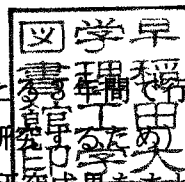 早稲田大
学理工学
図書館印
年間で行
研究するため